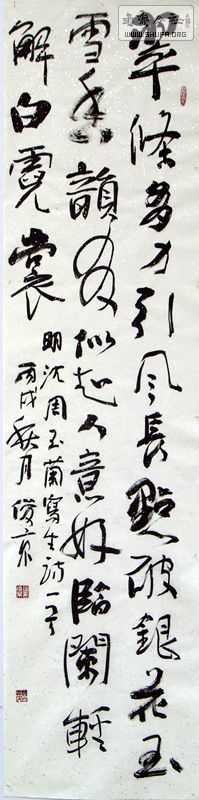 翠條多力引風長點破銀花玉
雪香韻友似知人意好隔闌輕
解白霓裳
明沈周玉蘭寫生詩一首
丙戌秋月俊京
WWW.SHUFA.ORG